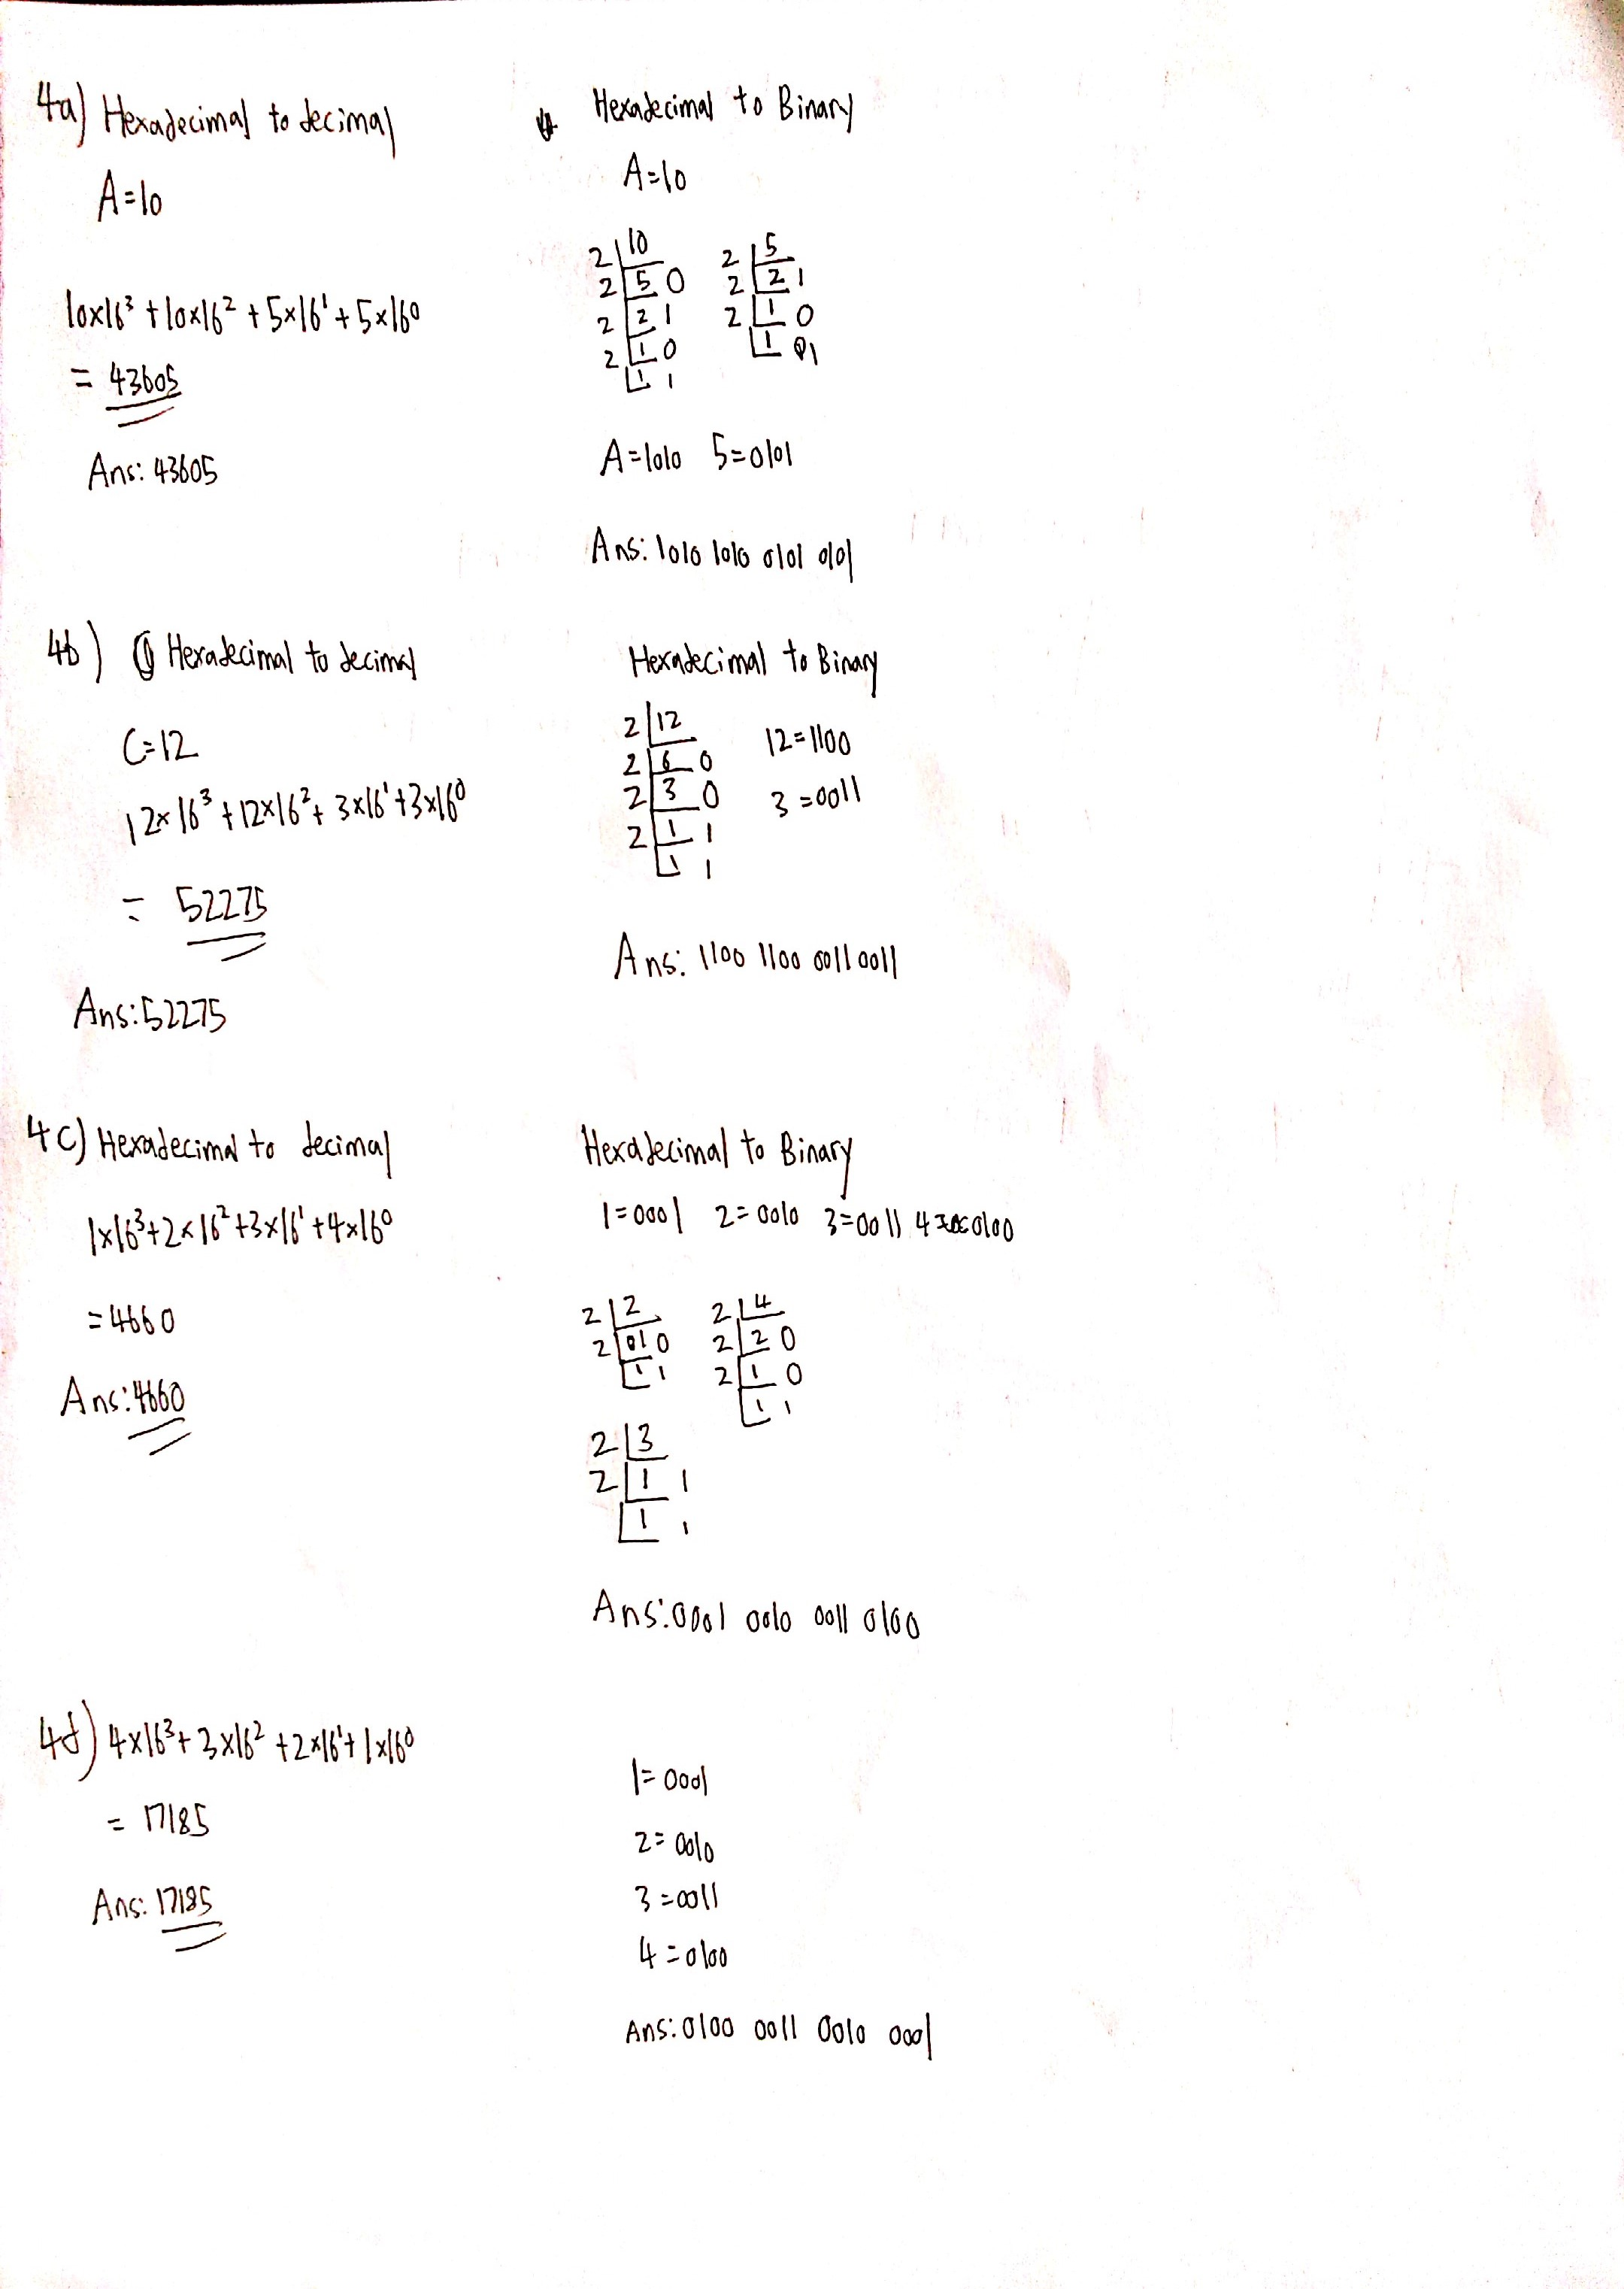 4a) Hexadecimal to decimal
A=10
10x16³ + 10x16² + 5x16¹ + 5x16⁰
= 43605
Ans: 43605
Hexadecimal to Binary
A=10
2 10
2 5 0
2 2 1
2 1 0
1 1
2 5
2 2 1
2 1 0
1 1
A=1010 5=0101
Ans: 1010 1010 0101 0101
4b) Hexadecimal to decimal
C=12
12x16³ + 12x16² + 3x16¹ + 3x16⁰
= 52275
Ans: 52275
Hexadecimal to Binary
2 12
2 6 0
2 3 0
2 1 1
1 1
12=1100
3=0011
Ans: 1100 1100 0011 0011
4c) Hexadecimal to decimal
1x16³+2x16²+3x16¹+4x16⁰
=4660
Ans: 4660
Hexadecimal to Binary
1=0001 2=0010 3=0011 4=0100
2 2
2 1 0
1 1
2 4
2 2 0
2 1 0
1 1
2 3
2 1 1
1 1
Ans: 0001 0010 0011 0100
4d) 4x16³+3x16²+2x16¹+1x16⁰
= 17185
Ans: 17185
1=0001
2=0010
3=0011
4=0100
Ans: 0100 0011 0010 0001